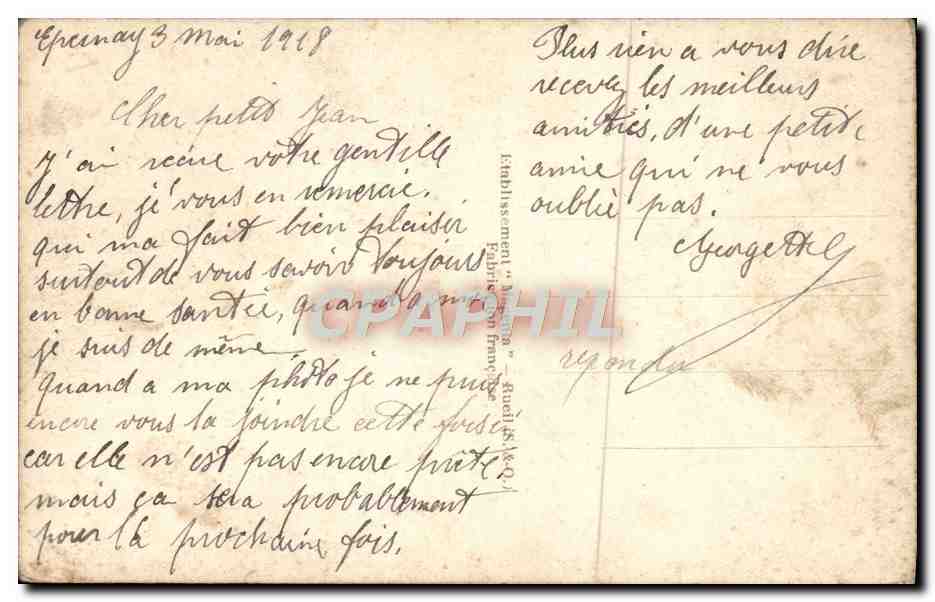 Epernay 3 Mai 1918
Cher petit Jean
J'ai recue votre gentille
lettre, je vous en remercie.
qui ma fait bien plaisir
surtout de vous savoir toujours
en bonne santée, quand a moi
je suis de même
quand a ma photo je ne puis
encore vous la joindre cette fois ci
car elle n'est pas encore prête,
mais ça sera probablement
pour la prochaine fois.
Plus rien a vous dire
recevez les meilleurs
amitiés, d'une petite
amie qui ne vous
oublie pas.
Georgette
repondu
Etablissement " " - Rueil (S.&O.)
Fabrication française
CPAPHIL